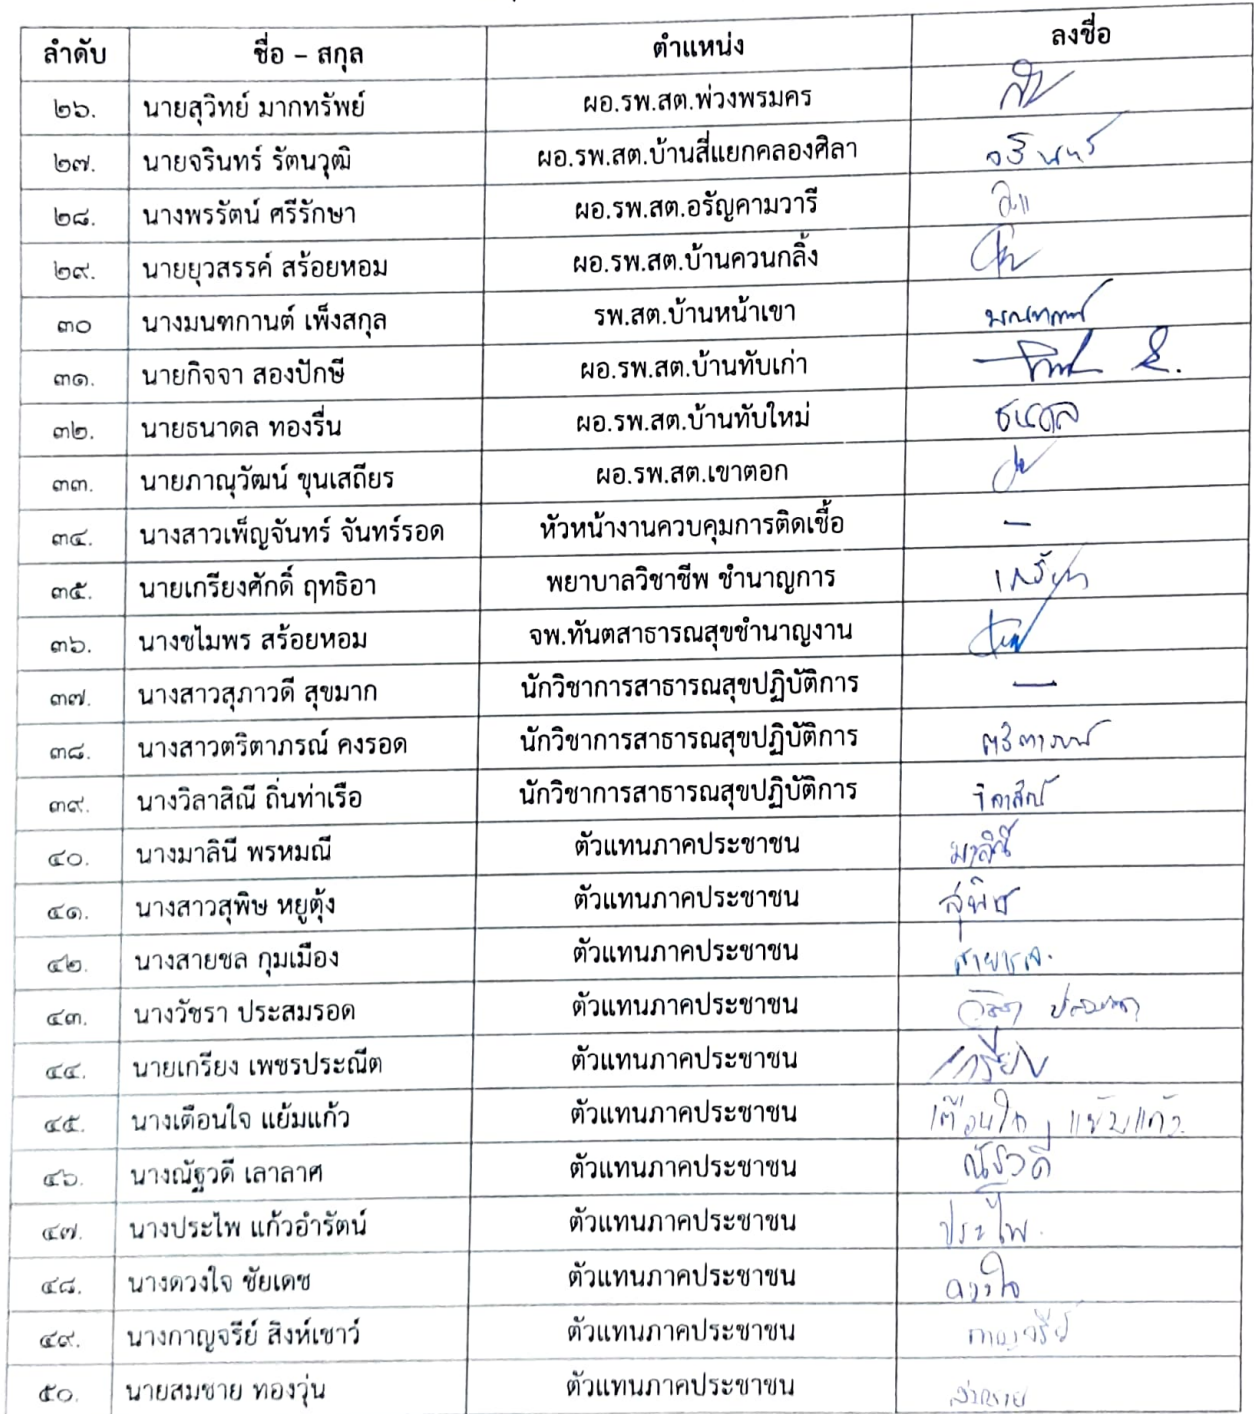 ลำดับ ชื่อ – สกุล ตำแหน่ง ลงชื่อ
๒๖. นายสุวิทย์ มากทรัพย์ ผอ.รพ.สต.พ่วงพรมคร
๒๗. นายจรินทร์ รัตนวุฒิ ผอ.รพ.สต.บ้านสี่แยกคลองศิลา จรินทร์
๒๘. นางพรรัตน์ ศรีรักษา ผอ.รพ.สต.อรัญคามวารี
๒๙. นายยุวสรรค์ สร้อยหอม ผอ.รพ.สต.บ้านควนกลิ้ง
๓๐ นางมนฑกานต์ เพ็งสกุล รพ.สต.บ้านหน้าเขา
๓๑. นายกิจจา สองปักษี ผอ.รพ.สต.บ้านทับเก่า
๓๒. นายธนาดล ทองรื่น ผอ.รพ.สต.บ้านทับใหม่ ธนาดล
๓๓. นายภาณุวัฒน์ ขุนเสถียร ผอ.รพ.สต.เขาตอก
๓๔. นางสาวเพ็ญจันทร์ จันทร์รอด หัวหน้างานควบคุมการติดเชื้อ –
๓๕. นายเกรียงศักดิ์ ฤทธิอา พยาบาลวิชาชีพ ชำนาญการ
๓๖. นางชไมพร สร้อยหอม จพ.ทันตสาธารณสุขชำนาญงาน
๓๗. นางสาวสุภาวดี สุขมาก นักวิชาการสาธารณสุขปฏิบัติการ –
๓๘. นางสาวตริตาภรณ์ คงรอด นักวิชาการสาธารณสุขปฏิบัติการ ตริตาภรณ์
๓๙. นางวิลาสิณี ถิ่นท่าเรือ นักวิชาการสาธารณสุขปฏิบัติการ วิลาสิณี
๔๐. นางมาลินี พรหมณี ตัวแทนภาคประชาชน มาลินี
๔๑. นางสาวสุพิษ หยูตุ้ง ตัวแทนภาคประชาชน สุพิษ
๔๒. นางสายชล กุมเมือง ตัวแทนภาคประชาชน สายชล.
๔๓. นางวัชรา ประสมรอด ตัวแทนภาคประชาชน วัชรา ประสมรอด
๔๔. นายเกรียง เพชรประณีต ตัวแทนภาคประชาชน เกรียง
๔๕. นางเตือนใจ แย้มแก้ว ตัวแทนภาคประชาชน เตือนใจ แย้มแก้ว
๔๖. นางณัฐวดี เลาลาศ ตัวแทนภาคประชาชน ณัฐวดี
๔๗. นางประไพ แก้วอำรัตน์ ตัวแทนภาคประชาชน ประไพ.
๔๘. นางดวงใจ ชัยเดช ตัวแทนภาคประชาชน ดวงใจ
๔๙. นางกาญจรีย์ สิงห์เชาว์ ตัวแทนภาคประชาชน กาญจรีย์
๕๐. นายสมชาย ทองวุ่น ตัวแทนภาคประชาชน สมชาย